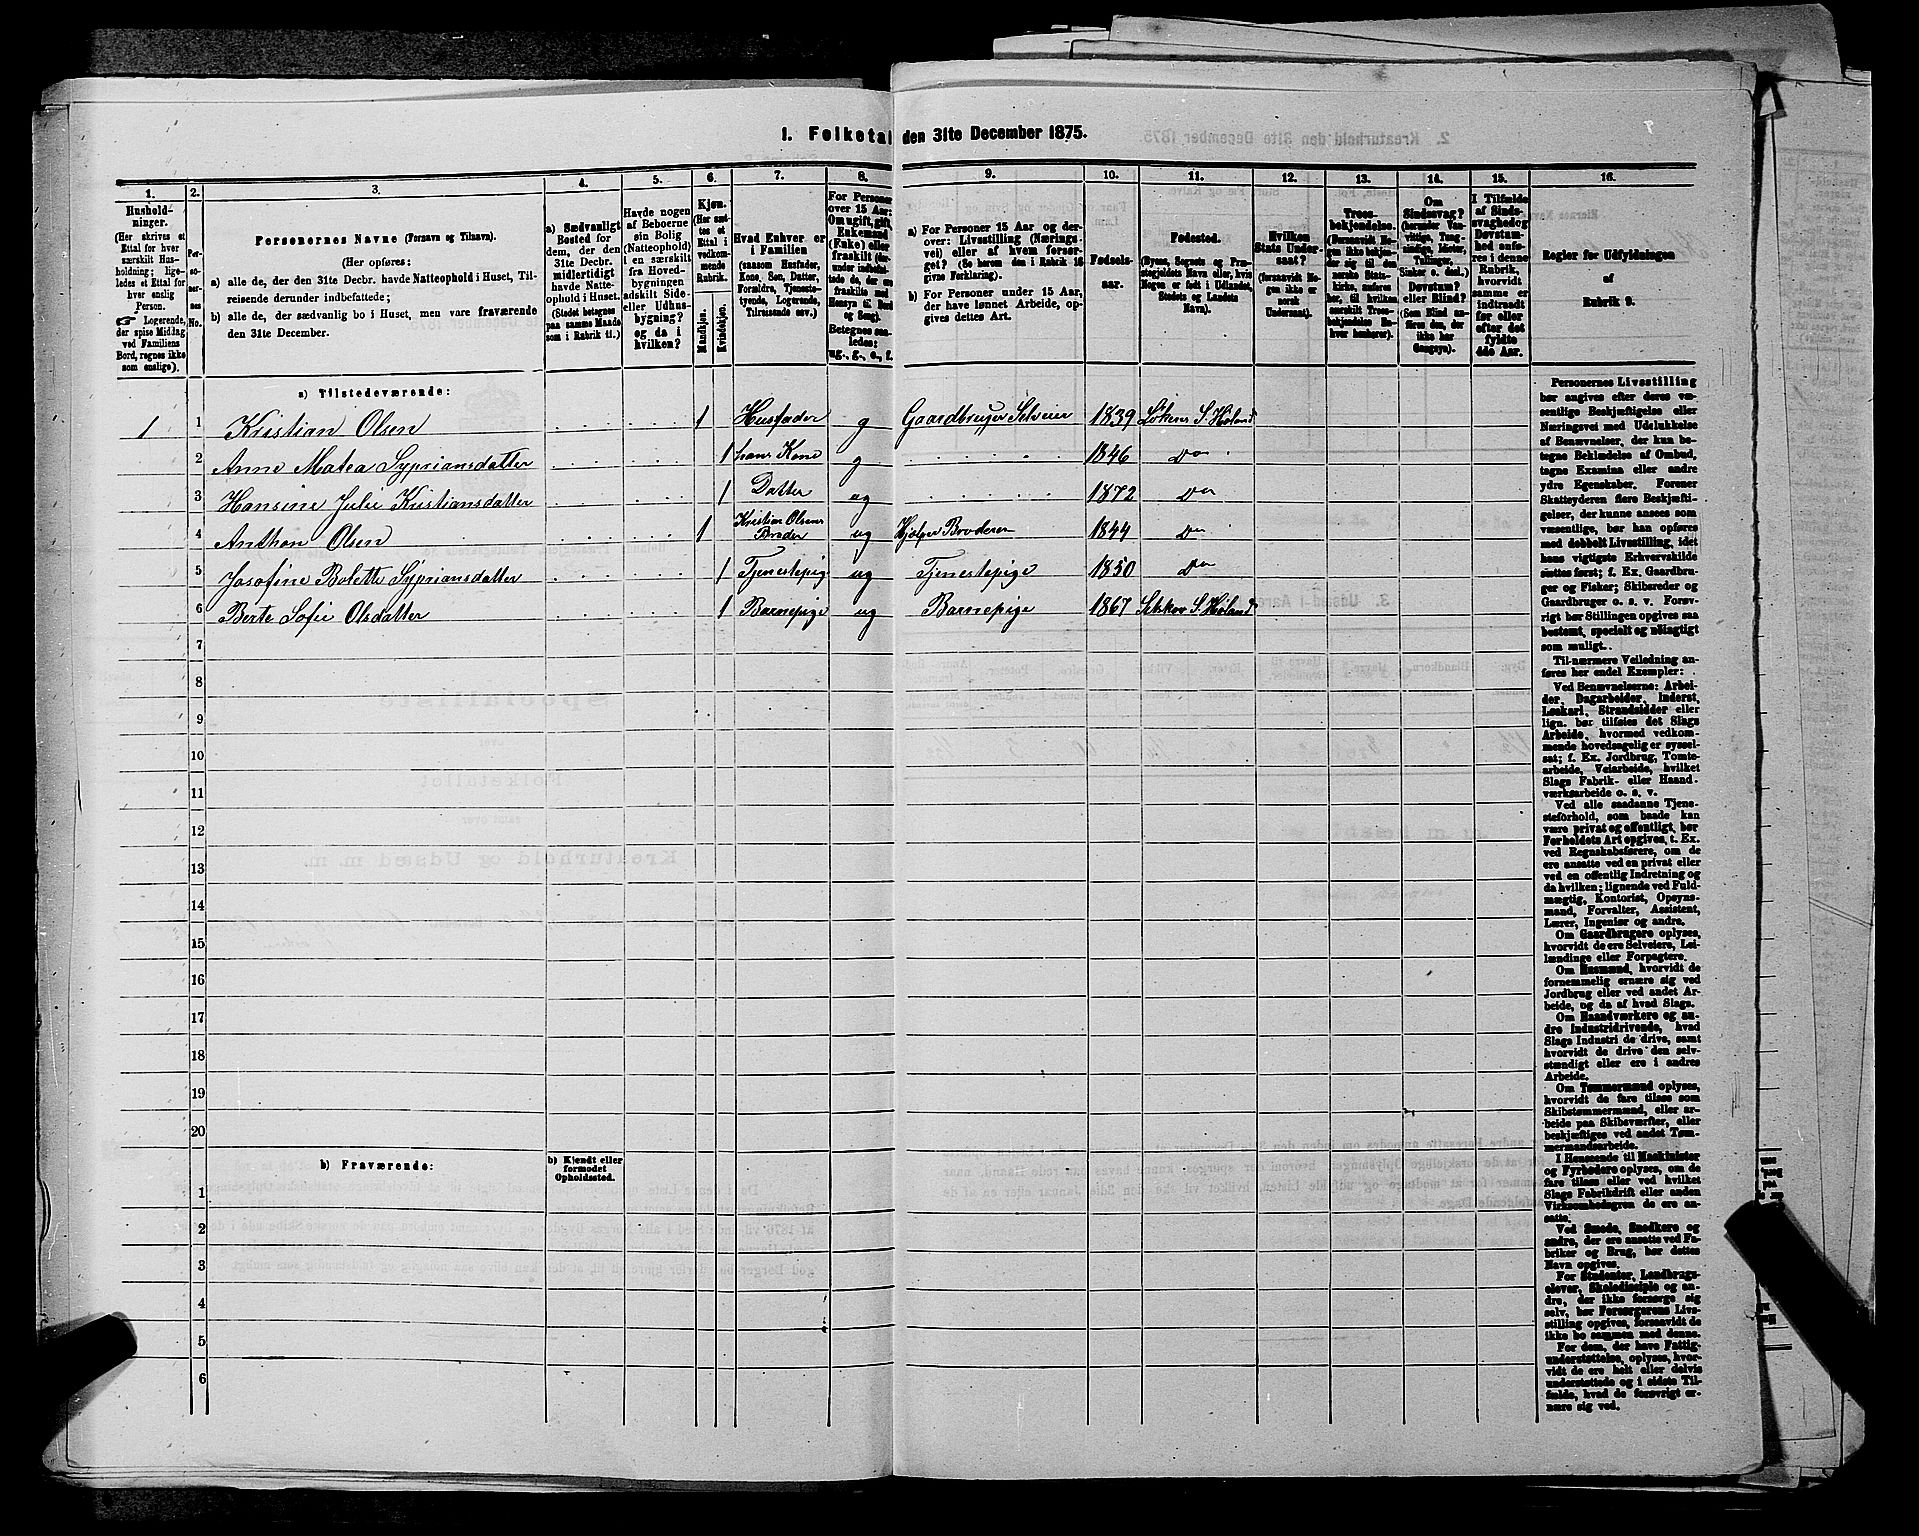 1. Folketal den 31te December 1875.
1. 2. 3. 4. 5. 6. 7. 8. 9. 10. 11. 12. 13. 14. 15. 16.
Husholdninger.
(Her skrives et
Ettal for hver
særskilt Husholdning;
ligeledes et Ettal for
hver enslig
Person.
☞ Logerende,
der spise Middag
ved Familiens
Bord, regnes ikke
som enslige).
Personernes No.
Personernes Navne (Fornavn og Tilnavn).
(Her opføres:
a) alle de, der den 31te Decbr. havde Natteophold i Huset, Tilreisende derunder indbefattede;
b) alle de, der sædvanlig bo i Huset, men vare fraværende
den 31te December.
a) Sædvanligt
Bosted for
dem, der den
31te Decbr.
midlertidigt
havde Natteophold
i Huset.
(Stedet betegnes
paa samme Maade
som i Rubrik 11.)
Havde nogen
af Beboerne
sin Bolig
(Natteophold)
i en særskilt
fra Hovedbygningen
adskilt Side- eller Udhusbygning?
og da i
hvilken?
Kjøn.
(Her sættes
et Ettal i
vedkommende
Rubrik.
Mandkjøn.
Kvindekjøn.
Hvad Enhver er
i Familien
(saasom Husfader,
Kone, Søn, Datter,
Forældre, Tjenestetyende,
Logerende,
Tilreisende osv.)
For Personer
over 15 Aar:
Om ugift, gift,
Enkemand
(Enke) eller
fraskilt
Betegnes saaledes:
ug., g., e., f.
a) For Personer 15 Aar og derover:
Livsstilling (Næringsvei)
eller af hvem forsørget?
(Se herom den i Rubrik 16
givne Forklaring).
b) For Personer under 15 Aar,
der have lønnet Arbeide, opgives
dettes Art.
Fødselsaar.
Fødested.
(Byens, Sognets og Præstegjeldets
Navn eller, hvis
Nogen er født i Udlandet,
Stedets og Landets
Navn).
Hvilken
Stats Undersaat?
(forsaavidt Nogen
ikke er
norsk
Undersaat).
Troesbekjendelse.
(Forsaavidt Nogen
ikke bekjender
sig til den
norske Statskirke,
anføres
her, til hvilken
særskilt Troesbekjendelse
Enhver
henhører).
Om
Sindssvag?
(herunder Vanvittige,
Tungsindige,
Idioter,
Tullinger,
Sinker o. desl.)
Døvstum?
eller Blind?
(Som Blind anføres
den, der
ikke har
Gangsyn).
I Tilfælde
af Sindssvaghed og
Døvstumhed
anføres
i denne
Rubrik,
hvorvidt
samme er
indtraadt
før eller
efter det
fyldte
4de Aar.
Regler for Udfyldningen
af
Rubrik 9.
a) Tilstedeværende:
1 1 Kristian Olsen 1 Husfader g Gaardbruger Selveier 1839 Løkenes S. Høland
2 Anne Matea Sypriansdatter 1 hans Kone g 1846 Do
3 Hansine Julie Kristiansdatter 1 Datter ug 1872 Do
4 Anthon Olsen 1 Kristian Olsens Broder ug Hjælper Broderen 1844 Do
5 Josefine Bolette Sypriansdatter 1 Tjenestepig ug Tjenestepige 1850 Do
6 Berte Sofie Olsdatter 1 Barnepige ug Barnepige 1867 S. Høland
7
8
9
10
11
12
13
14
15
16
17
18
19
20
b) Fraværende:
b) Kjendt eller
formodet
Opholdssted.
1
2
3
4
5
6
Personernes Livsstilling
bør angives efter deres væsentlige
Beskjæftigelse eller
Næringsvei med Udelukkelse
af Benævnelser, der kun betegne
Beklædelse af Ombud,
tagne Examina eller andre
ydre Egenskaber. Forener
Skatteyderen flere Beskjæftigelser,
der kunne ansees som
væsentlige, bør han opføres
med dobbelt Livsstilling, idet
hans vigtigste Erhvervskilde
sættes først; f. Ex. Gaardbruger
og Fisker; Skibsreder og
Gaardbruger o. s. v. Forøvrigt
bør Stillingen opgives saa
bestemt, specielt og nøiagtigt
som muligt.
Til nærmere Veiledning anføres
her endel Exempler:
Ved Benævnelserne: Arbeider,
Dagarbeider, Inderst,
Løskarl, Strandsidder eller
lign. bør tilføies det Slags
Arbeide, hvormed vedkommende
hovedsagelig er sysselsat;
f. Ex. Jordbrug, Tomtearbeide,
Veiarbeide, hvilket
Slags Fabrik- eller Haandværksarbeide
o. s. v.
Ved alle saadanne Tjenesteforhold,
som baade kan
være privat og offentligt, bør
Forholdets Art opgives, t. Ex.
ved Regnskabsførere, om de
ere ansatte ved en privat eller
ved en offentlig Indretning og
da hvilken; lignende ved Fuldmægtig,
Kontorist, Opsynsmand,
Forvalter, Assistent,
Lærer, Ingeniør og andre.
Om Gaardbrugere oplyses,
hvorvidt de ere Selveiere, Leilændinge
eller Forpagtere.
Om Husmænd, hvorvidt de
fornemmelig ernære sig ved
Jordbrug eller ved andet Arbeide,
og da af hvad Slags.
Om Haandværkere og andre
Industridrivende, hvad
Slags Industri de drive, samt
hvorvidt de drive den selvstændigt
eller ere i andres
Arbeide.
Om Tømmermænd oplyses,
hvorvidt de fare tilsøs som
Skibstømmermænd, eller arbeide
paa Skibsværfter, eller
beskjæftiges ved andet Tømmermandsarbeide.
I Henseende til Maskinister
og Fyrbødere oplyses, om de
fare tilsøs eller ved hvilket
Slags Fabrikdrift eller anden
Virksomhedsgren de ere ansatte.
Ved Smede, Snedkere og
andre, der ere ansatte ved Fabriker
og Brug, bør dettes
Navn opgives.
For Studenter, Landbrugselever,
Skoledisciple og andre,
der ikke forsørge sig
selv, bør Forsørgerens Livsstilling
opgives, forsaavidt de
ikke bo sammen med denne.
For dem, der have Fattigunderstøttelse,
oplyses, hvorvidt
de ere helt eller delvis
understøttede og i sidste Tilfælde,
hvad de forøvrigt ernære
sig ved.